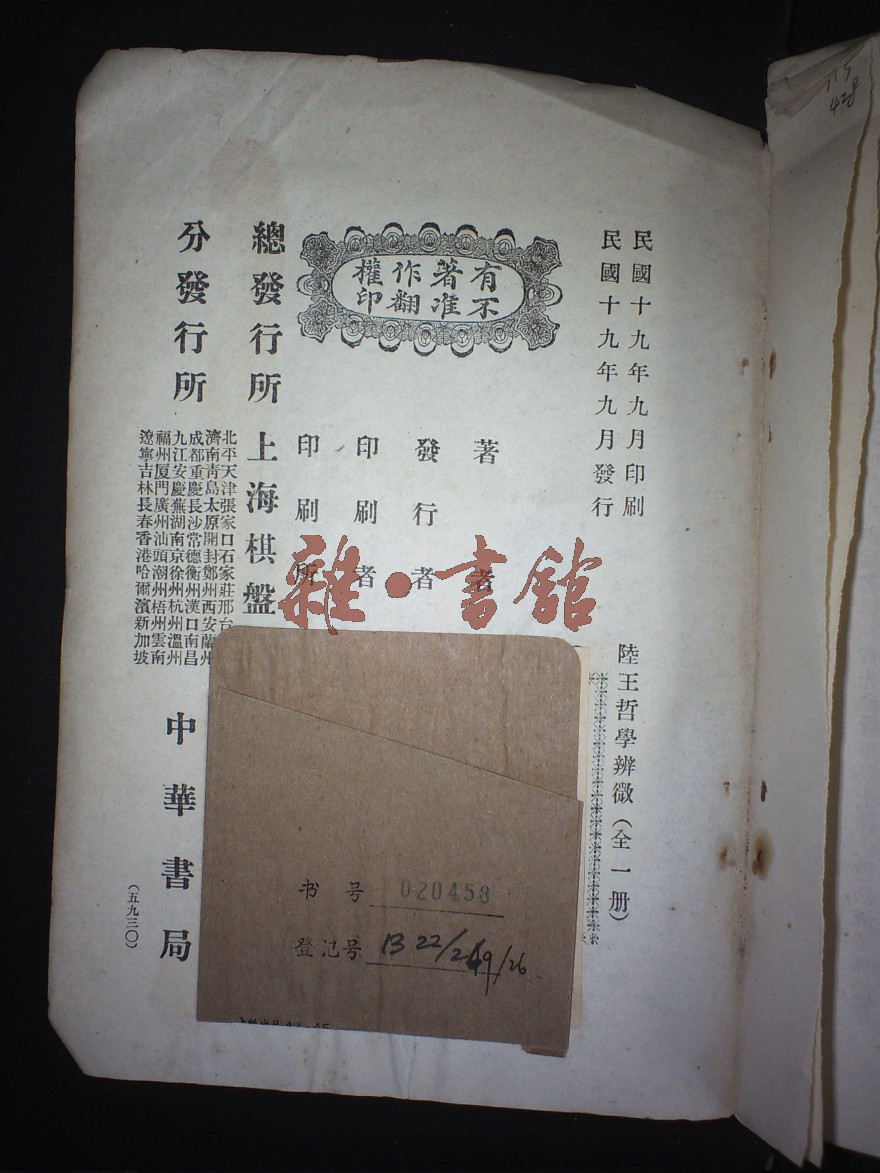 民國十九年九月印刷
民國十九年九月發行
陸王哲學辨微（全一册）
有著作權
不准翻印
著者
發行者
印刷者
印刷所
總發行所
上海棋盤
分發行所
北平天津張家口石家莊邢台
濟南青島太原開封鄭州西安蘭州
成都重慶長沙常德衡州漢口南昌
九江安慶蕪湖南京徐州杭州溫州
福州厦門廣州汕頭潮州梧州雲南
遼寧吉林長春香港哈爾濱新加坡
中華書局
（五九三〇）
雜·書館
书号 020458
登记号 B 22/249/26
115
428